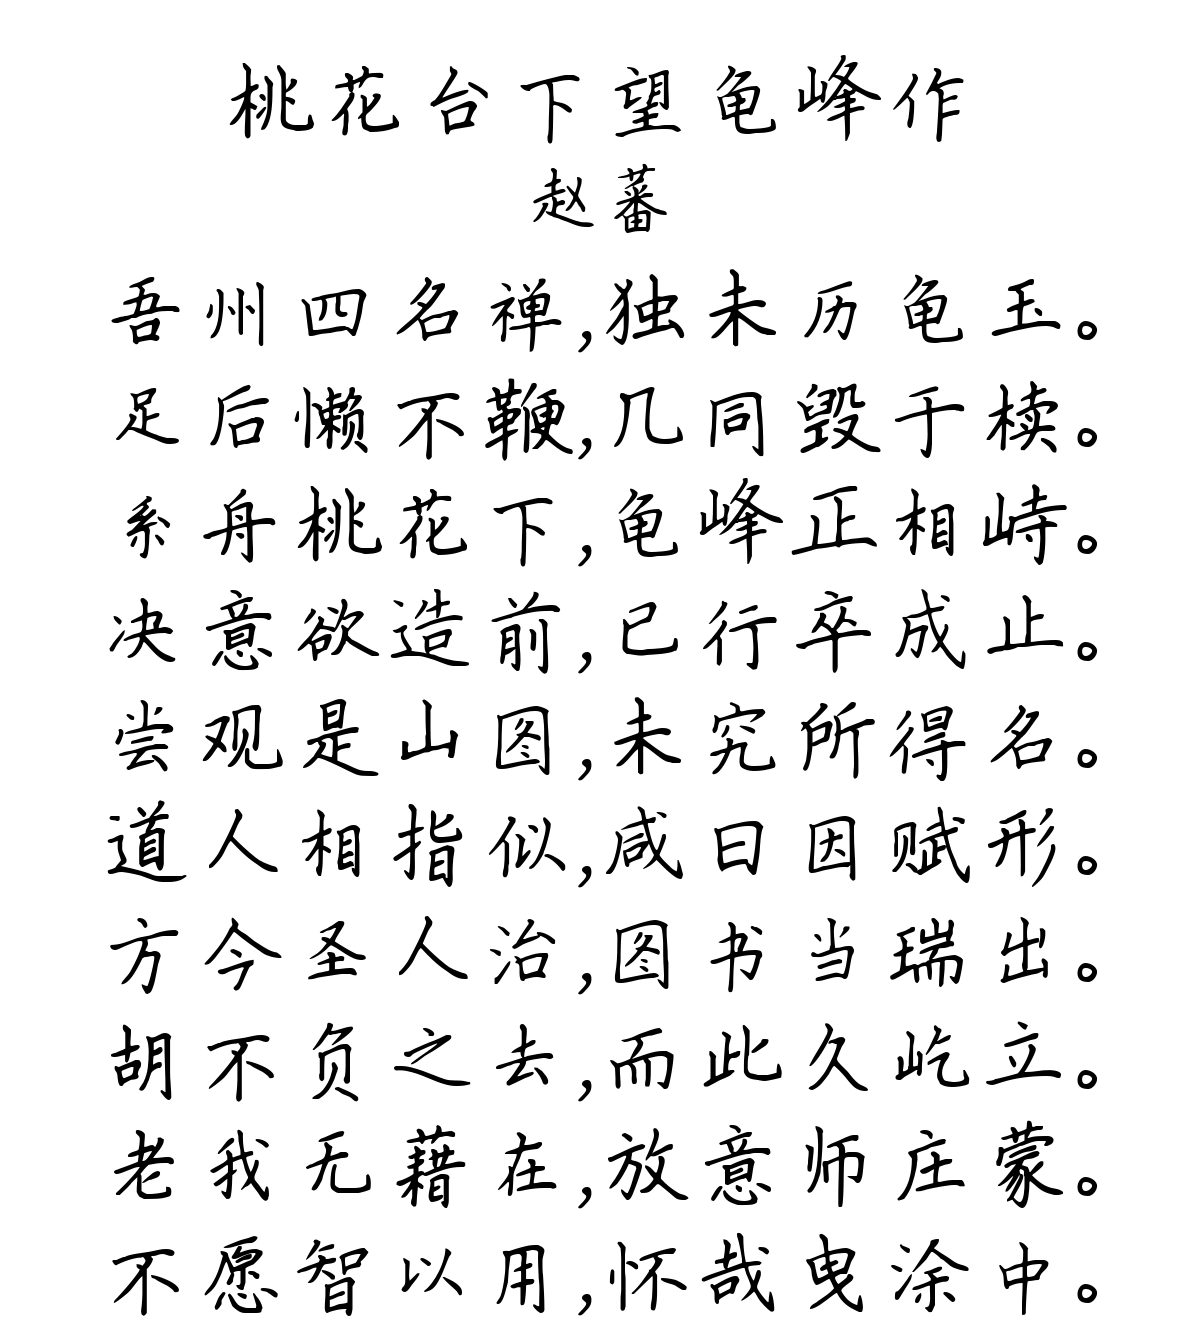 桃花台下望龟峰作
赵蕃
吾州四名禅,独未历龟玉。
足后懒不鞭,几同毁于椟。
系舟桃花下,龟峰正相峙。
决意欲造前,已行卒成止。
尝观是山图,未究所得名。
道人相指似,咸曰因赋形。
方今圣人治,图书当瑞出。
胡不负之去,而此久屹立。
老我无藉在,放意师庄蒙。
不愿智以用,怀哉曳涂中。